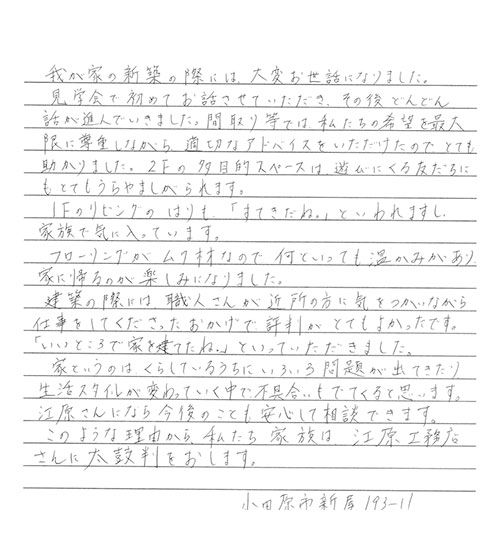 我が家の新築の際には、大変お世話になりました。
見学会で初めてお話させていただき、その後どんどん
話が進んでいきました。間取り等では、私たちの希望を最大
限に尊重しながら、適切なアドバイスをいただけたのでとても
助かりました。2Fの多目的スペースは、遊びにくる友だちに
もとてもうらやましがられます。
1Fのリビングのはりも、「すてきだね。」といわれますし、
家族で気に入っています。
フローリングがムク材なので何といっても温かみがあり
家に帰るのが楽しみになりました。
建築の際には職人さんが近所の方に気をつかいながら
仕事をしてくださったおかげで、評判がとてもよかったです。
「いいところで家を建てたね。」といっていただきました。
家というのは、くらしているうちにいろいろ問題が出てきたり
生活スタイルが変わっていく中で、不具合いもでてくると思います。
江原さんになら今後のことも安心して相談できます。
このような理由から、私たち家族は、江原工務店
さんに太鼓判をおします。
小田原市新屋193-11